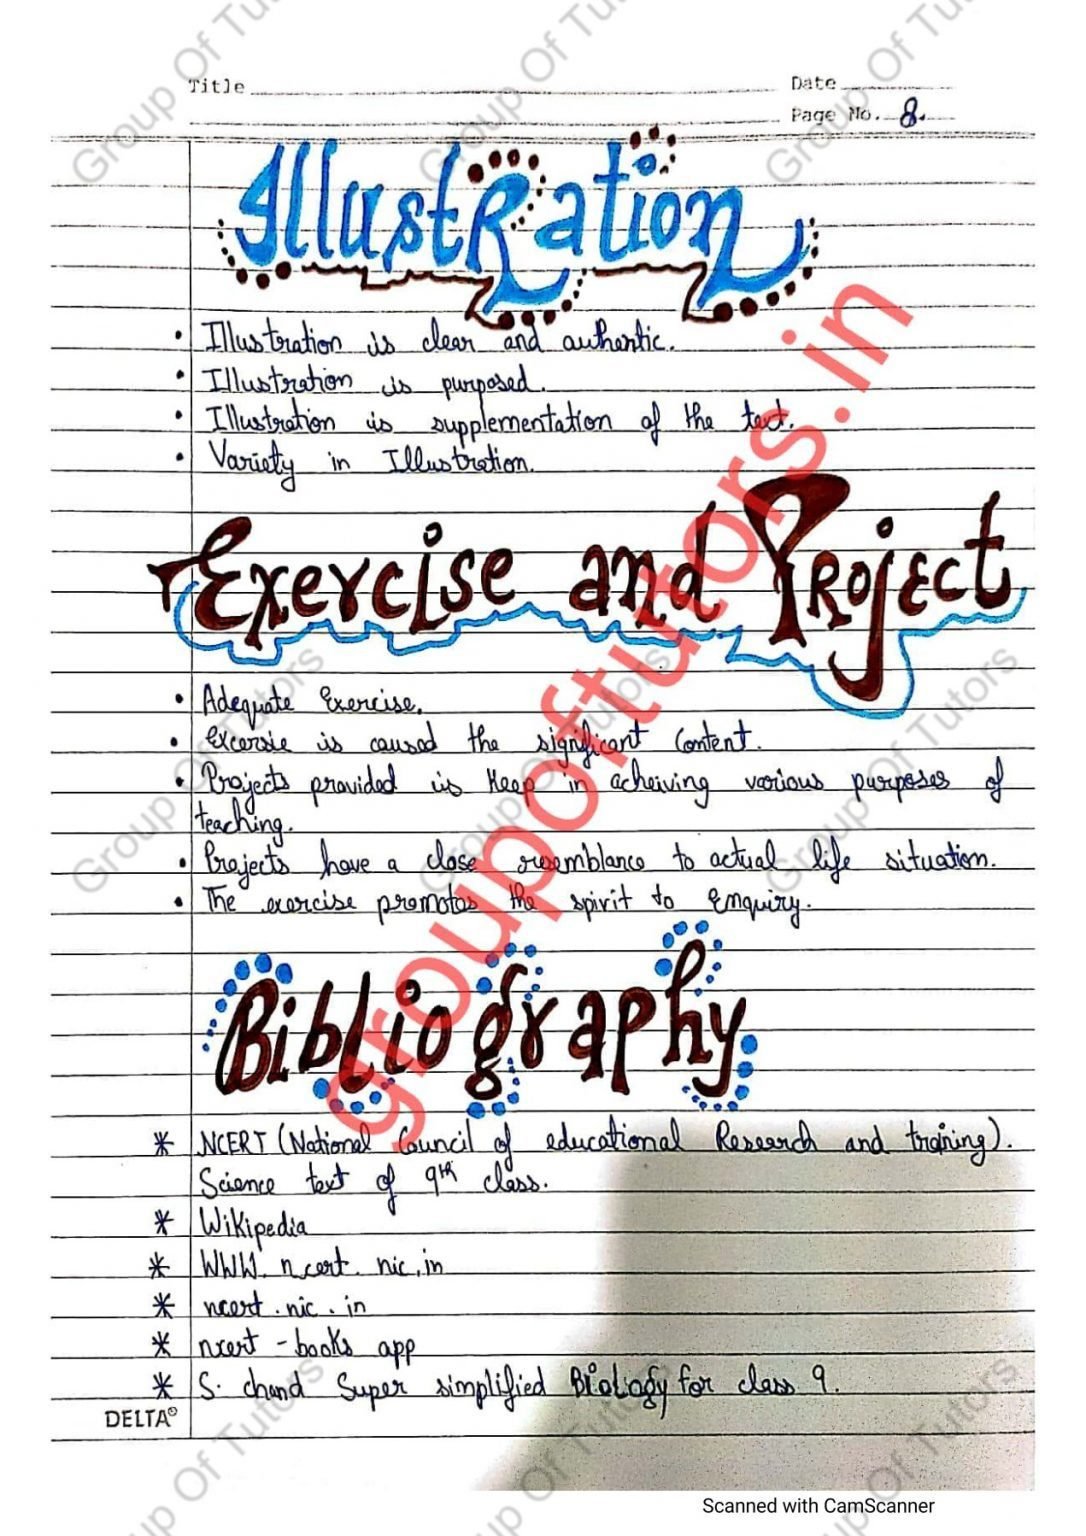 Title
Date
Page No. 8.
IllustRation
• Illustration is clear and authentic.
• Illustration is purposed.
• Illustration is supplementation of the text.
• Variety in Illustration.
Exercise and Project
• Adequate Exercise.
• Excersie is caused the significant Content.
• Projects provided is Keep in acheiving various purposes of
teaching.
• Projects have a close resemblance to actual life situation.
• The exercise promotes the spirit to Enquiry.
Bibliography
* NCERT (National Council of educational Research and training).
Science text of 9th class.
* Wikipedia
* WWW. ncert. nic.in
* ncert.nic.in
* ncert - books app
* S. chand Super simplified Biology for class 9.
DELTA
groupoftutors.in
Group Of Tutors
Scanned with CamScanner